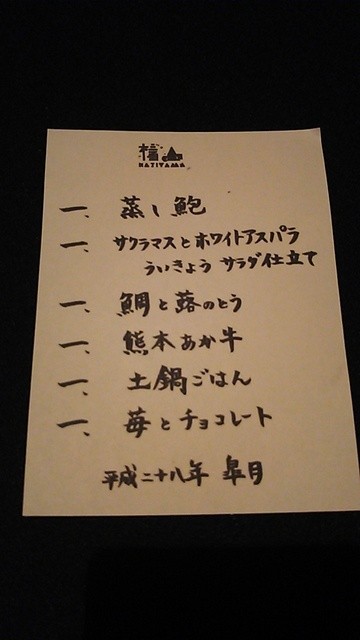 HAJIYAMA
一、 蒸し鮑
一、 サクラマスとホワイトアスパラ
ういきょう サラダ仕立て
一、 鯛と蕗のとう
一、 熊本あか牛
一、 土鍋ごはん
一、 苺とチョコレート
平成二十八年 皐月